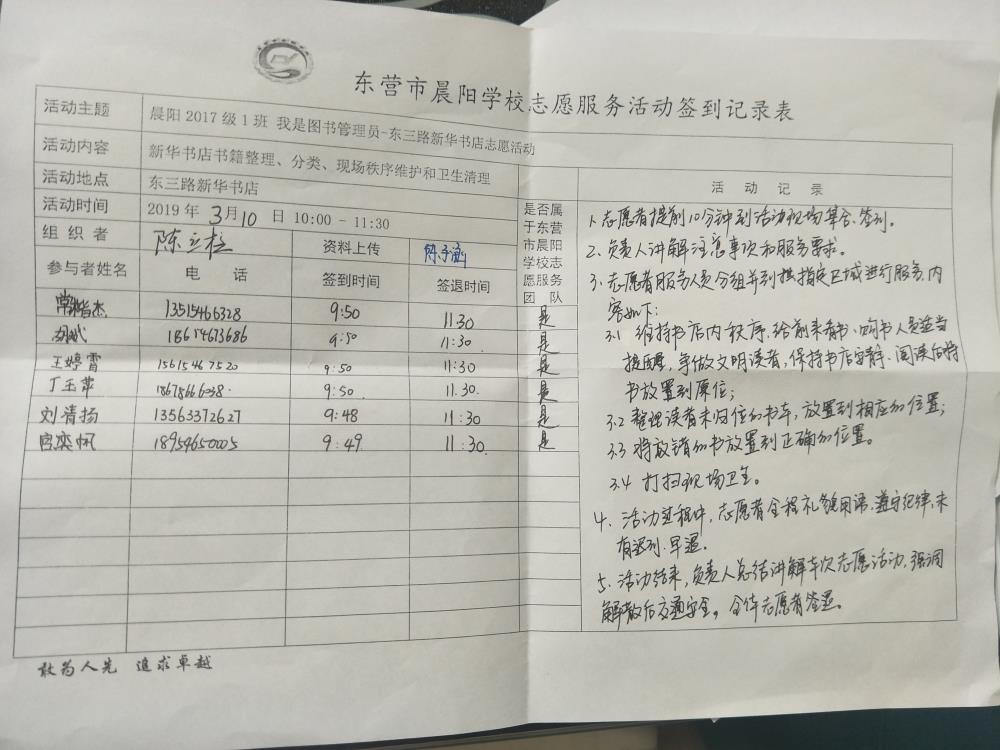 东营市晨阳学校志愿服务活动签到记录表
活动主题 晨阳 2017 级 1 班 我是图书管理员-东三路新华书店志愿活动
活动内容 新华书店书籍整理、分类、现场秩序维护和卫生清理
活动地点 东三路新华书店
活动时间 2019 年 3月10 日 10:00 - 11:30
组织者 陈立柱 资料上传
参与者姓名 电话 签到时间 签退时间
是否属
于东营
市晨阳
学校志
愿服务
团队
13515466328 9:50 11:30 是
18674673686 9:50 11:30 是
王婷雪 15615467520 9:50 11:30 是
丁玉萍 18678666038. 9:50 11.30. 是
刘清扬 13563372627 9:48 11:30 是
宫奕帆 18954650005 9:49 11:30. 是
敢为人先 追求卓越
活动记录
1、志愿者提前10分钟到活动现场集合、签到。
2、负责人讲解注意事项和服务要求。
3、志愿者服务人员分组并到指定区域进行服务,内
容如下:
3.1 维持书店内秩序,给前来看书、购书人员适当
提醒,争做文明读者,保持书店安静、阅读后将
书放置到原位;
3.2 整理读者未归位的书本,放置到相应的位置;
3.3 将放错的书放置到正确的位置。
3.4 打扫现场卫生。
4、活动过程中,志愿者全程礼貌用语、遵守纪律,未
有迟到、早退。
5、活动结束,负责人总结讲解本次志愿活动,强调
解散后交通安全。全体志愿者签退。